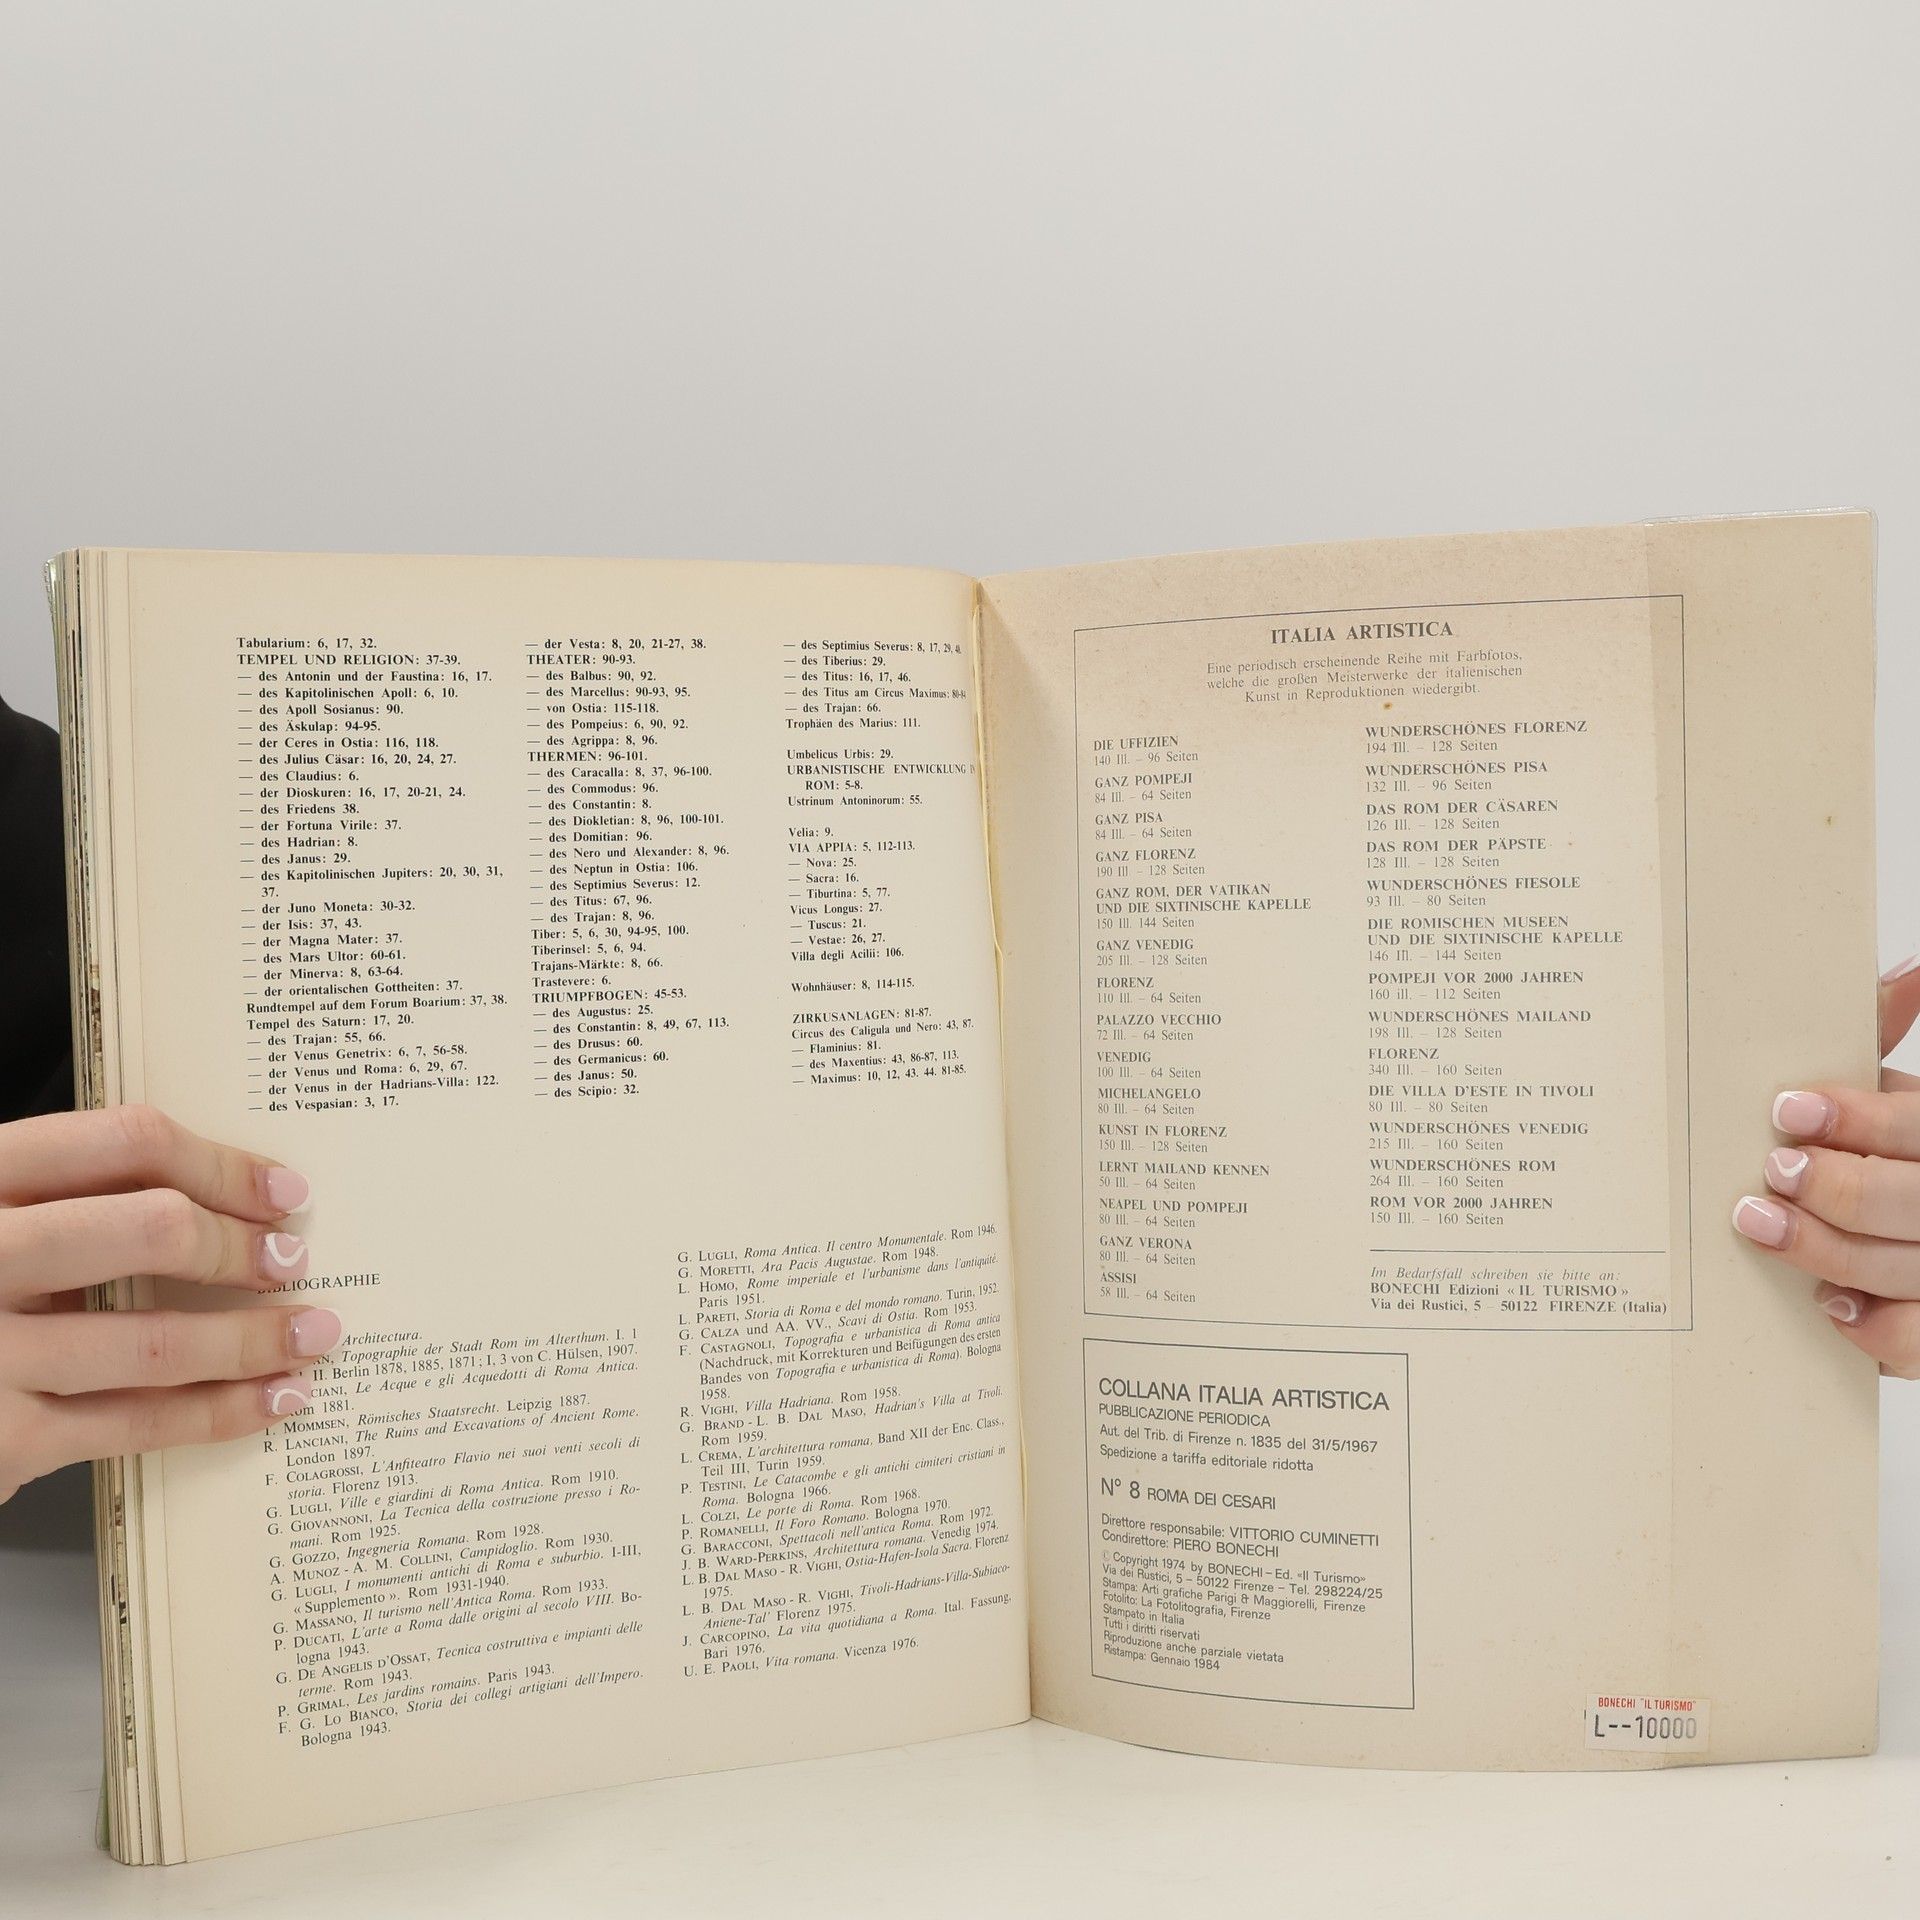 Tabularium: 6, 17, 32.
TEMPEL UND RELIGION: 37-39.
— des Antonin und der Faustina: 16, 17.
— des Kapitolinischen Apoll: 6, 10.
— des Apoll Sosianus: 90.
— des Äskulap: 94-95.
— der Ceres in Ostia: 116, 118.
— des Julius Cäsar: 16, 20, 24, 27.
— des Claudius: 6.
— der Dioskuren: 16, 17, 20-21, 24.
— des Friedens 38.
— der Fortuna Virile: 37.
— des Hadrian: 8.
— des Janus: 29.
— des Kapitolinischen Jupiters: 20, 30, 31,
37.
— der Juno Moneta: 30-32.
— der Isis: 37, 43.
— der Magna Mater: 37.
— des Mars Ultor: 60-61.
— der Minerva: 8, 63-64.
— der orientalischen Gottheiten: 37.
Rundtempel auf dem Forum Boarium: 37, 38.
Tempel des Saturn: 17, 20.
— des Trajan: 55, 66.
— der Venus Genetrix: 6, 7, 56-58.
— der Venus und Roma: 6, 29, 67.
— der Venus in der Hadrians-Villa: 122.
— des Vespasian: 3, 17.
— der Vesta: 8, 20, 21-27, 38.
THEATER: 90-93.
— des Balbus: 90, 92.
— des Marcellus: 90-93, 95.
— von Ostia: 115-118.
— des Pompeius: 6, 90, 92.
— des Agrippa: 8, 96.
THERMEN: 96-101.
— des Caracalla: 8, 37, 96-100.
— des Commodus: 96.
— des Constantin: 8.
— des Diokletian: 8, 96, 100-101.
— des Domitian: 96.
— des Nero und Alexander: 8, 96.
— des Neptun in Ostia: 106.
— des Septimius Severus: 12.
— des Titus: 67, 96.
— des Trajan: 8, 96.
Tiber: 5, 6, 30, 94-95, 100.
Tiberinsel: 5, 6, 94.
Trajans-Märkte: 8, 66.
Trastevere: 6.
TRIUMPFBOGEN: 45-53.
— des Augustus: 25.
— des Constantin: 8, 49, 67, 113.
— des Drusus: 60.
— des Germanicus: 60.
— des Janus: 50.
— des Scipio: 32.
— des Septimius Severus: 8, 17, 29,
— des Tiberius: 29.
— des Titus: 16, 17, 46.
— des Titus am Circus Maximus: 80-84
— des Trajan: 66.
Trophäen des Marius: 111.
Umbelicus Urbis: 29.
URBANISTISCHE ENTWICKLUNG
ROM: 5-8.
Ustrinum Antoninorum: 55.
Velia: 9.
VIA APPIA: 5, 112-113.
— Nova: 25.
— Sacra: 16.
— Tiburtina: 5, 77.
Vicus Longus: 27.
— Tuscus: 21.
— Vestae: 26, 27.
Villa degli Acilii: 106.
Wohnhäuser: 8, 114-115.
ZIRKUSANLAGEN: 81-87.
Circus des Caligula und Nero: 43, 87.
— Flaminius: 81.
— des Maxentius: 43, 86-87, 113.
— Maximus: 10, 12, 43. 44. 81-85.
BIBLIOGRAPHIE
Architectura.
Topographie der Stadt Rom im Alterthum. I. 1
II. Berlin 1878, 1885, 1871; I, 3 von C. Hülsen, 1907.
Le Acque e gli Acquedotti di Roma Antica.
1881.
MOMMSEN, Römisches Staatsrecht. Leipzig 1887.
R. LANCIANI, The Ruins and Excavations of Ancient Rome.
London 1897.
F. COLAGROSSI, L'Anfiteatro Flavio nei suoi venti secoli di
storia. Florenz 1913.
G. LUGLI, Ville e giardini di Roma Antica. Rom 1910.
G. GIOVANNONI, La Tecnica della costruzione presso i Ro-
mani. Rom 1925.
G. GOZZO, Ingegneria Romana. Rom 1928.
A. MUNOZ - A. M. COLLINI, Campidoglio. Rom 1930.
G. LUGLI, I monumenti antichi di Roma e suburbio. I-III,
« Supplemento ». Rom 1931-1940.
G. MASSANO, Il turismo nell'Antica Roma. Rom 1933.
P. DUCATI, L'arte a Roma dalle origini al secolo VIII. Bo-
logna 1943.
G. DE ANGELIS D'OSSAT, Tecnica costruttiva e impianti delle
terme. Rom 1943.
P. GRIMAL, Les jardins romains. Paris 1943.
F. G. LO BIANCO, Storia dei collegi artigiani dell'Impero.
Bologna 1943.
G. LUGLI, Roma Antica. Il centro Monumentale. Rom 1946.
G. MORETTI, Ara Pacis Augustae. Rom 1948.
L. HOMO, Rome imperiale et l'urbanisme dans l'antiquité.
Paris 1951.
L. PARETI, Storia di Roma e del mondo romano. Turin, 1952.
G. CALZA und AA. VV., Scavi di Ostia. Rom 1953.
F. CASTAGNOLI, Topografia e urbanistica di Roma antica
(Nachdruck, mit Korrekturen und Beifügungen des ersten
Bandes von Topografia e urbanistica di Roma). Bologna
1958.
R. VIGHI, Villa Hadriana. Rom 1958.
G. BRAND - L. B. DAL MASO, Hadrian's Villa at Tivoli.
Rom 1959.
L. CREMA, L'architettura romana, Band XII der Enc. Class.,
Teil III, Turin 1959.
P. TESTINI, Le Catacombe e gli antichi cimiteri cristiani in
Roma. Bologna 1966.
L. COLZI, Le porte di Roma. Rom 1968.
P. ROMANELLI, Il Foro Romano. Bologna 1970.
G. BARACCONI, Spettacoli nell'antica Roma. Rom 1972.
J. B. WARD-PERKINS, Architettura romana. Venedig 1974.
L. B. DAL MASO - R. VIGHI, Ostia-Hafen-Isola Sacra. Florenz
1975.
L. B. DAL MASO - R. VIGHI, Tivoli-Hadrians-Villa-Subiaco-
Aniene-Tal' Florenz 1975.
J. CARCOPINO, La vita quotidiana a Roma. Ital. Fassung,
Bari 1976.
U. E. PAOLI, Vita romana. Vicenza 1976.
ITALIA ARTISTICA
Eine periodisch erscheinende Reihe mit Farbfotos,
welche die großen Meisterwerke der italienischen
Kunst in Reproduktionen wiedergibt.
DIE UFFIZIEN
140 Ill. – 96 Seiten
GANZ POMPEJI
84 Ill. – 64 Seiten
GANZ PISA
84 Ill. – 64 Seiten
GANZ FLORENZ
190 Ill. – 128 Seiten
GANZ ROM, DER VATIKAN
UND DIE SIXTINISCHE KAPELLE
150 Ill. 144 Seiten
GANZ VENEDIG
205 Ill. – 128 Seiten
FLORENZ
110 Ill. – 64 Seiten
PALAZZO VECCHIO
72 Ill. – 64 Seiten
VENEDIG
100 Ill. – 64 Seiten
MICHELANGELO
80 Ill. – 64 Seiten
KUNST IN FLORENZ
150 Ill. – 128 Seiten
LERNT MAILAND KENNEN
50 Ill. – 64 Seiten
NEAPEL UND POMPEJI
80 Ill. – 64 Seiten
GANZ VERONA
80 Ill. – 64 Seiten
ASSISI
58 Ill. – 64 Seiten
WUNDERSCHÖNES FLORENZ
194 Ill. – 128 Seiten
WUNDERSCHÖNES PISA
132 Ill. – 96 Seiten
DAS ROM DER CÄSAREN
126 Ill. – 128 Seiten
DAS ROM DER PÄPSTE
128 Ill. – 128 Seiten
WUNDERSCHÖNES FIESOLE
93 Ill. – 80 Seiten
DIE ROMISCHEN MUSEEN
UND DIE SIXTINISCHE KAPELLE
146 Ill. – 144 Seiten
POMPEJI VOR 2000 JAHREN
160 ill. – 112 Seiten
WUNDERSCHÖNES MAILAND
198 Ill. – 128 Seiten
FLORENZ
340 Ill. – 160 Seiten
DIE VILLA D'ESTE IN TIVOLI
80 Ill. – 80 Seiten
WUNDERSCHÖNES VENEDIG
215 Ill. – 160 Seiten
WUNDERSCHÖNES ROM
264 Ill. – 160 Seiten
ROM VOR 2000 JAHREN
150 Ill. – 160 Seiten
Im Bedarfsfall schreiben sie bitte an:
BONECHI Edizioni « IL TURISMO »
Via dei Rustici, 5 – 50122 FIRENZE (Italia)
COLLANA ITALIA ARTISTICA
PUBBLICAZIONE PERIODICA
Aut. del Trib. di Firenze n. 1835 del 31/5/1967
Spedizione a tariffa editoriale ridotta
N° 8 ROMA DEI CESARI
Direttore responsabile: VITTORIO CUMINETTI
Condirettore: PIERO BONECHI
© Copyright 1974 by BONECHI – Ed. «Il Turismo»
Via dei Rustici, 5 – 50122 Firenze – Tel. 298224/25
Stampa: Arti grafiche Parigi & Maggiorelli, Firenze
Fotolito: La Fotolitografia, Firenze
Stampato in Italia
Tutti i diritti riservati
Riproduzione anche parziale vietata
Ristampa: Gennaio 1984
BONECHI "IL TURISMO"
L--10000